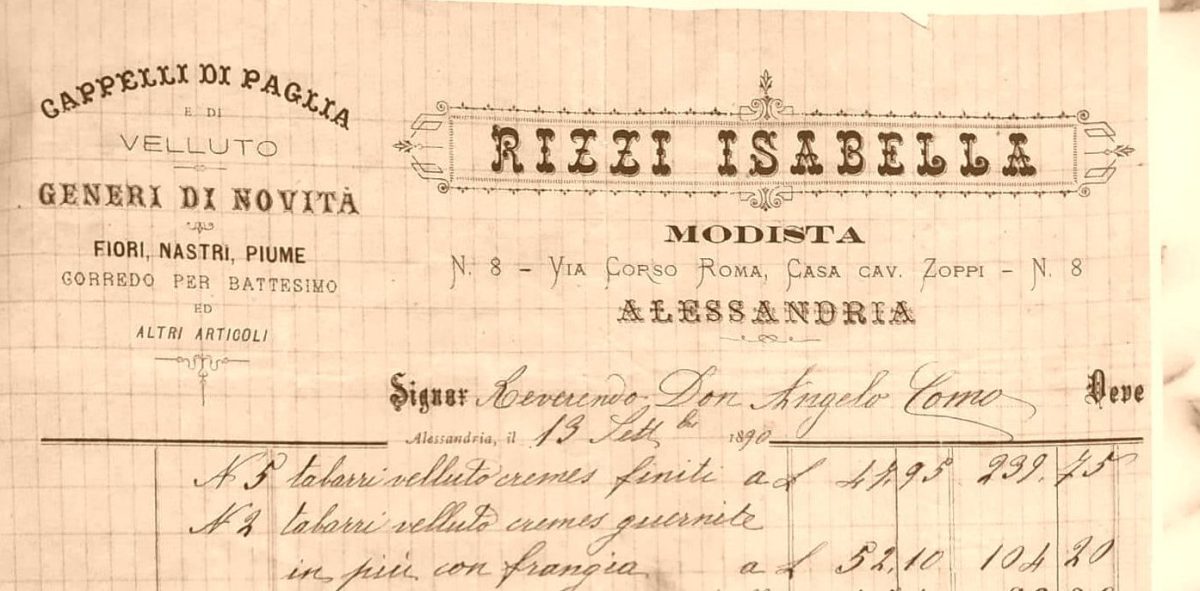 CAPPELLI DI PAGLIA
E DI
VELLUTO
GENERI DI NOVITÀ
FIORI, NASTRI, PIUME
CORREDO PER BATTESIMO
ED
ALTRI ARTICOLI
RIZZI ISABELLA
MODISTA
N. 8 - VIA CORSO ROMA, CASA CAV. ZOPPI - N. 8
ALESSANDRIA
Signor Reverendo Don Angelo Como Deve
Alessandria, il 13 Settbre 1890
N 5 tabarri velluto cremes finiti a £ 47,95 239,75
N 2 tabarri velluto cremes guernite
in più con frangia a £ 52,10 104 20